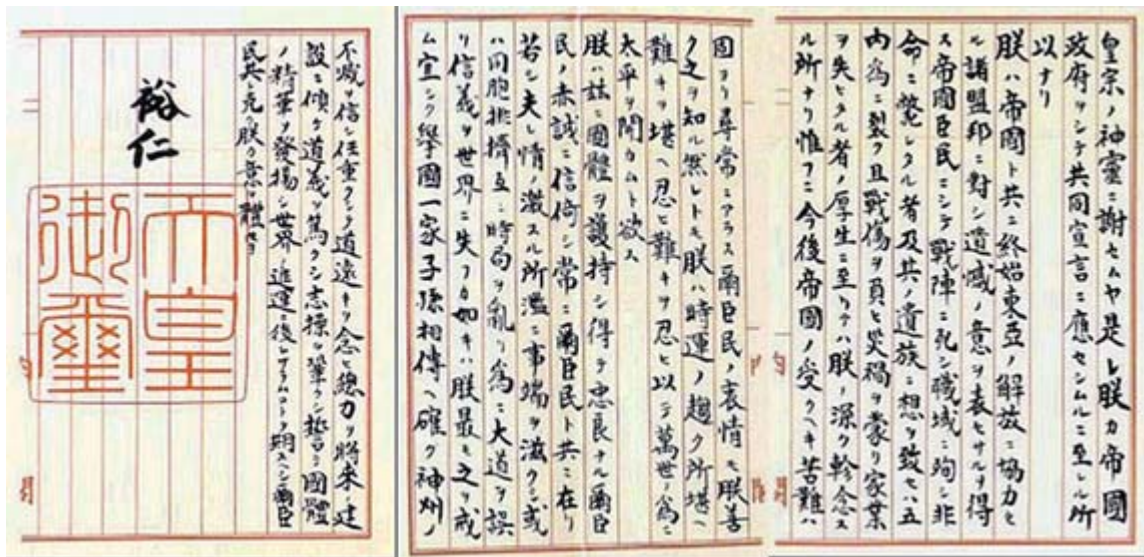 皇宗ノ神靈ニ謝セムヤ是レ朕カ帝國
政府ヲシテ共同宣言ニ應セシムルニ至レル所
以ナリ
朕ハ帝國ト共ニ終始東亞ノ解放ニ協力セ
ル諸盟邦ニ對シ遺憾ノ意ヲ表セサルヲ得
ス帝國臣民ニシテ戰陣ニ死シ職域ニ殉シ非
命ニ斃レタル者及其ノ遺族ニ想ヲ致セハ五
内為ニ裂ク且戰傷ヲ負ヒ災禍ヲ蒙リ家業
ヲ失ヒタル者ノ厚生ニ至リテハ朕ノ深ク軫念ス
ル所ナリ惟フニ今後帝國ノ受クヘキ苦難ハ
固ヨリ尋常ニアラス爾臣民ノ衷情モ朕善
ク之ヲ知ル然レトモ朕ハ時運ノ趨ク所堪ヘ
難キヲ堪ヘ忍ヒ難キヲ忍ヒ以テ萬世ノ為ニ
太平ヲ開カムト欲ス
朕ハ茲ニ國體ヲ護持シ得テ忠良ナル爾臣
民ノ赤誠ニ信倚シ常ニ爾臣民ト共ニ在リ
若シ夫レ情ノ激スル所濫ニ事端ヲ滋クシ或
ハ同胞排擠互ニ時局ヲ亂リ為ニ大道ヲ誤
リ信義ヲ世界ニ失フカ如キハ朕最モ之ヲ戒
ム宜シク擧國一家子孫相傳ヘ確ク神州ノ
不滅ヲ信シ任重クシテ道遠キヲ念ヒ總力ヲ將來ノ建
設ニ傾ケ道義ヲ篤クシ志操ヲ鞏クシ誓テ國體
ノ精華ヲ發揚シ世界ノ進運ニ後レサラムコトヲ期スヘシ爾臣
民其レ克ク朕カ意ヲ體セヨ
裕仁
天皇
御璽